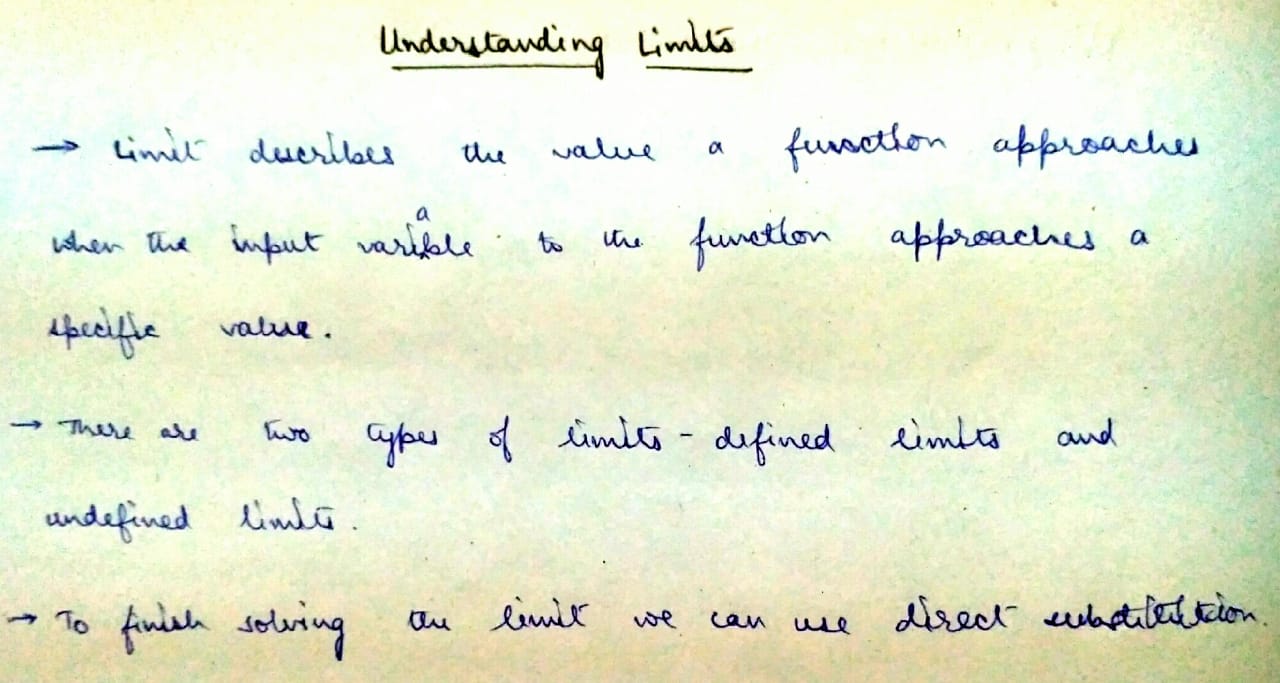 Understanding Limits
→ Limit describes the value a function approaches
when the input variable to the function approaches a
specific value.
→ There are two types of limits - defined limits and
undefined limits.
→ To finish solving the limit we can use direct substitution.